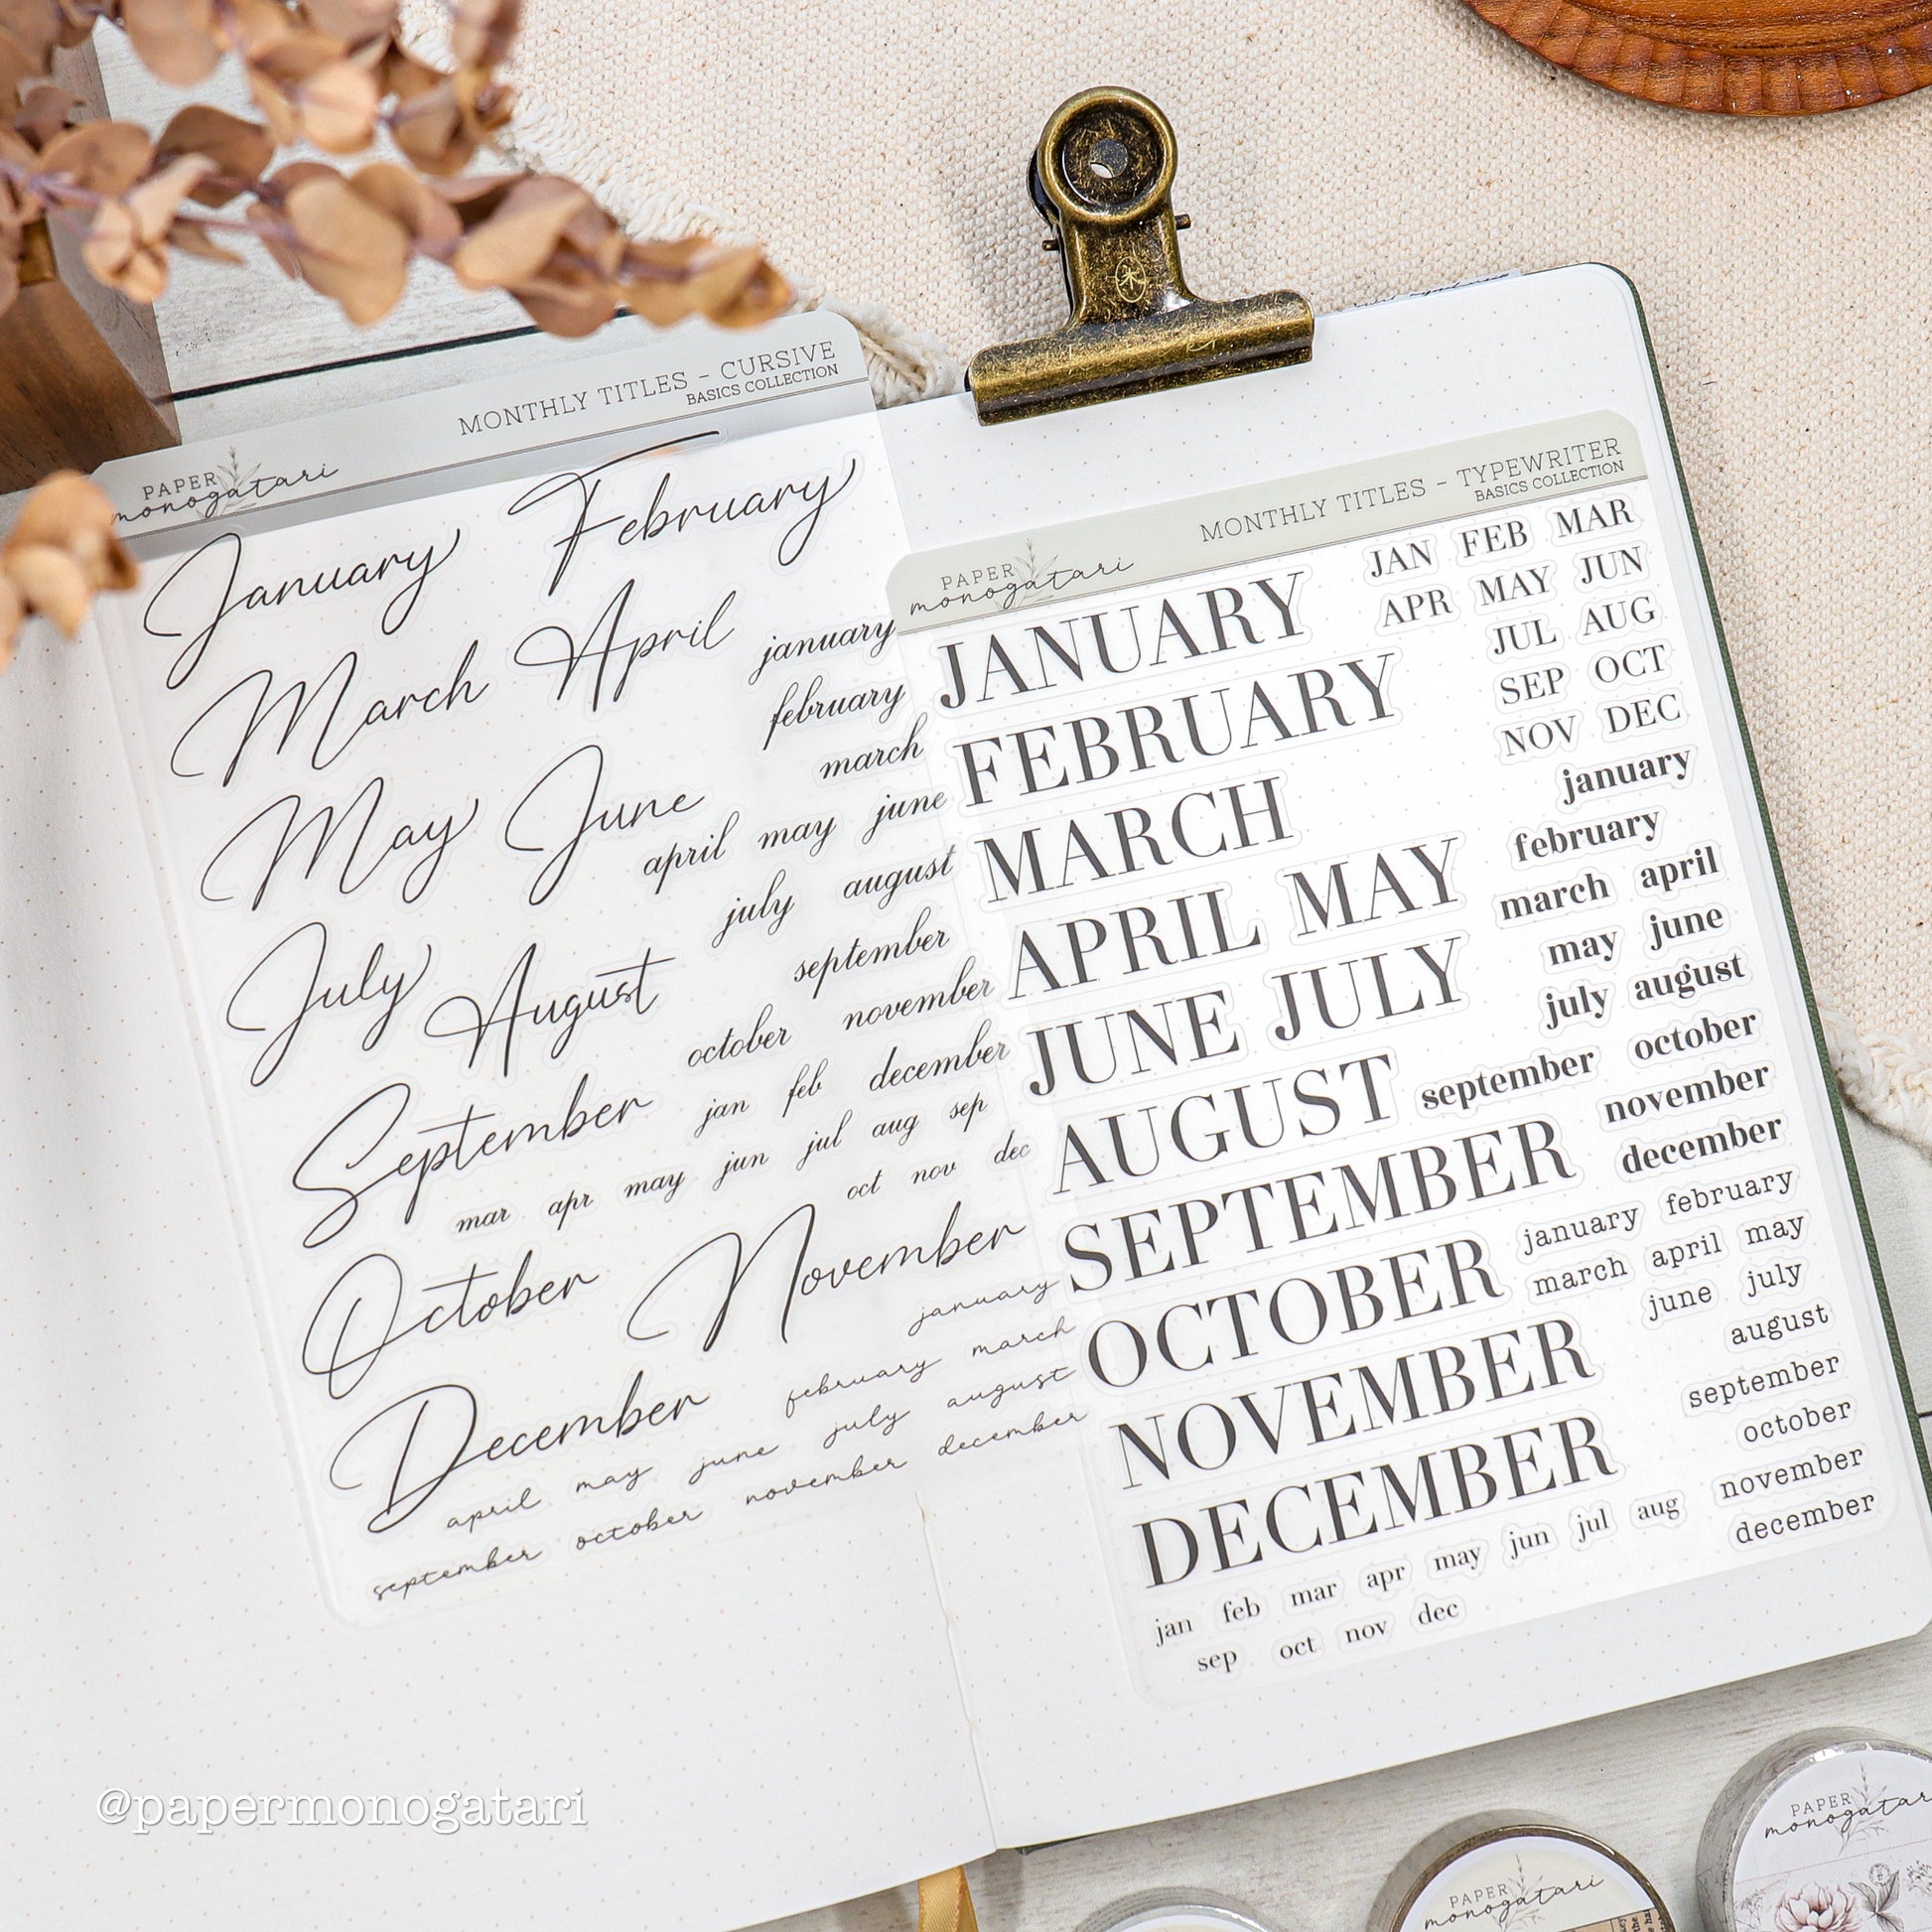 MONTHLY TITLES - CURSIVE
BASICS COLLECTION
PAPER
monogatari
January February
March April
january
february
march
May June
april may june
july august
July August
september
october november
September
jan feb december
mar apr may jun jul aug sep
oct nov dec
October November
january
december
February march
December
april may june july august
september october november december
MONTHLY TITLES - TYPEWRITER
BASICS COLLECTION
PAPER
monogatari
JANUARY
FEBRUARY
MARCH
APRIL MAY
JUNE JULY
AUGUST
SEPTEMBER
OCTOBER
NOVEMBER
DECEMBER
JAN FEB MAR
APR MAY JUN
JUL AUG
SEP OCT
NOV DEC
january
february
march april
may june
july august
september october
november
december
january february
march april may
june july
august
september
october
november
december
jan feb mar apr may jun jul aug
sep oct nov dec
@papermonogatari
PAPER
monogatari
PAPER
monogatari